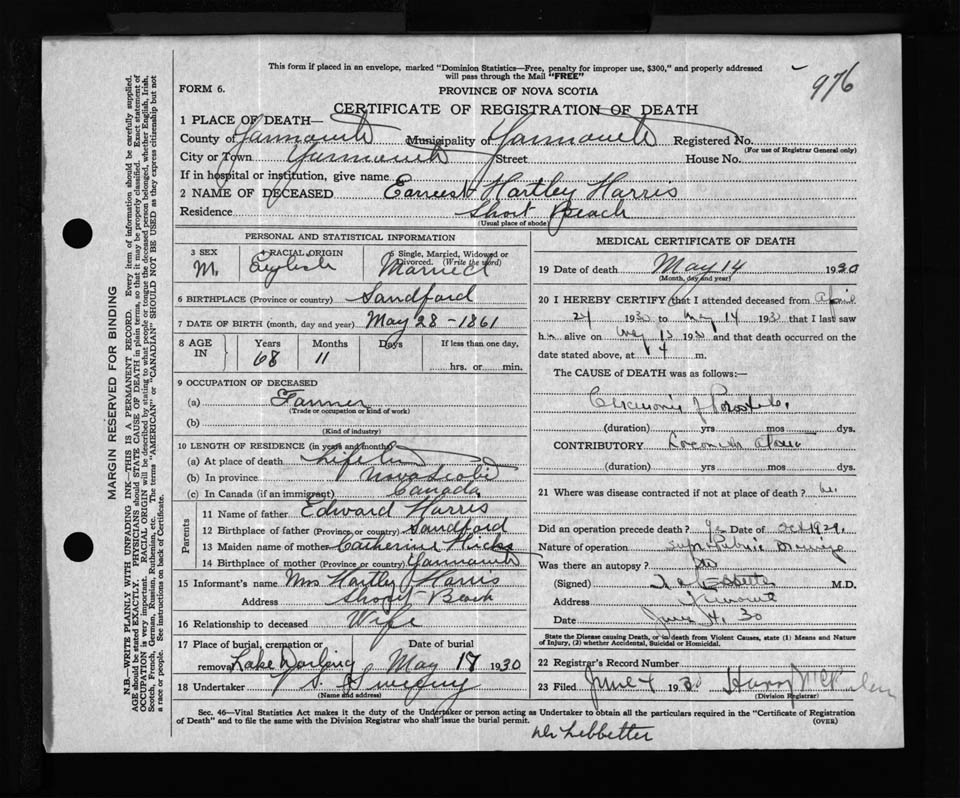 This form if placed in an envelope, marked "Dominion Statistics—Free, penalty for improper use, $300," and properly addressed
will pass through the Mail "FREE"
976
FORM 6.
PROVINCE OF NOVA SCOTIA
CERTIFICATE OF REGISTRATION OF DEATH
1 PLACE OF DEATH—
County of Yarmouth Municipality of Yarmouth Registered No.
(For use of Registrar General only)
City or Town Yarmouth Street House No.
If in hospital or institution, give name
2 NAME OF DECEASED Earnest Hartley Harris
Residence Short Beach
(Usual place of abode)
PERSONAL AND STATISTICAL INFORMATION
3 SEX 4 RACIAL ORIGIN 5 Single, Married, Widowed or
Divorced. (Write the word)
M. English Married
6 BIRTHPLACE (Province or country) Sandford
7 DATE OF BIRTH (month, day and year) May 28-1861
8 AGE IN Years Months Days If less than one day,
68 11
hrs. or min.
9 OCCUPATION OF DECEASED
(a) Farmer
(Trade or occupation or kind of work)
(b)
(Kind of industry)
10 LENGTH OF RESIDENCE (in years and months)
(a) At place of death Life time
(b) In province Nova Scotia
(c) In Canada (if an immigrant) Canada
Parents
11 Name of father Edward Harris
12 Birthplace of father (Province or country) Sandford
13 Maiden name of mother Catherine Hicks
14 Birthplace of mother (Province or country) Yarmouth
15 Informant's name Mrs Hartley Harris
Address Short Beach
16 Relationship to deceased Wife
17 Place of burial, cremation or Date of burial
removal Lake Darling May 17 1930
18 Undertaker V. S. Sweeny
(Name and address)
MEDICAL CERTIFICATE OF DEATH
19 Date of death May 14 1930
(Month, day and year)
20 I HEREBY CERTIFY that I attended deceased from April
24 1930 to May 14 1930 that I last saw
h alive on May 13 1930 and that death occurred on the
date stated above, at 4 m.
The CAUSE of DEATH was as follows:—
(duration) yrs mos dys.
CONTRIBUTORY
(duration) yrs. mos. dys.
21 Where was disease contracted if not at place of death?
Did an operation precede death? Yes Date of Oct 1929.
Nature of operation Supra Pubic
Was there an autopsy? No
(Signed) M.D.
Address Yarmouth
Date June 4, 30
State the Disease causing Death, or in death from Violent Causes, state (1) Means and Nature
of Injury, (2) whether Accidental, Suicidal or Homicidal.
22 Registrar's Record Number
23 Filed June 4 1930 Harry
(Division Registrar)
Sec. 46—Vital Statistics Act makes it the duty of the Undertaker or person acting as Undertaker to obtain all the particulars required in the "Certificate of Registration
of Death" and to file the same with the Division Registrar who shall issue the burial permit.
(OVER)
MARGIN RESERVED FOR BINDING
N.B.—WRITE PLAINLY WITH UNFADING INK—THIS IS A PERMANENT RECORD. Every item of information should be carefully supplied.
AGE should be stated EXACTLY. PHYSICIANS should STATE CAUSE OF DEATH in plain terms, so that it may be properly classified. Exact statement of
OCCUPATION is very important. RACIAL ORIGIN will be described by stating to what people or tongue the deceased person belonged, whether English, Irish,
Scotch, French, German, Russian, Ruthenian, etc. The terms "AMERICAN" or "CANADIAN" SHOULD NOT BE USED as they express citizenship but not
a race or people. See instructions on back of Certificate.